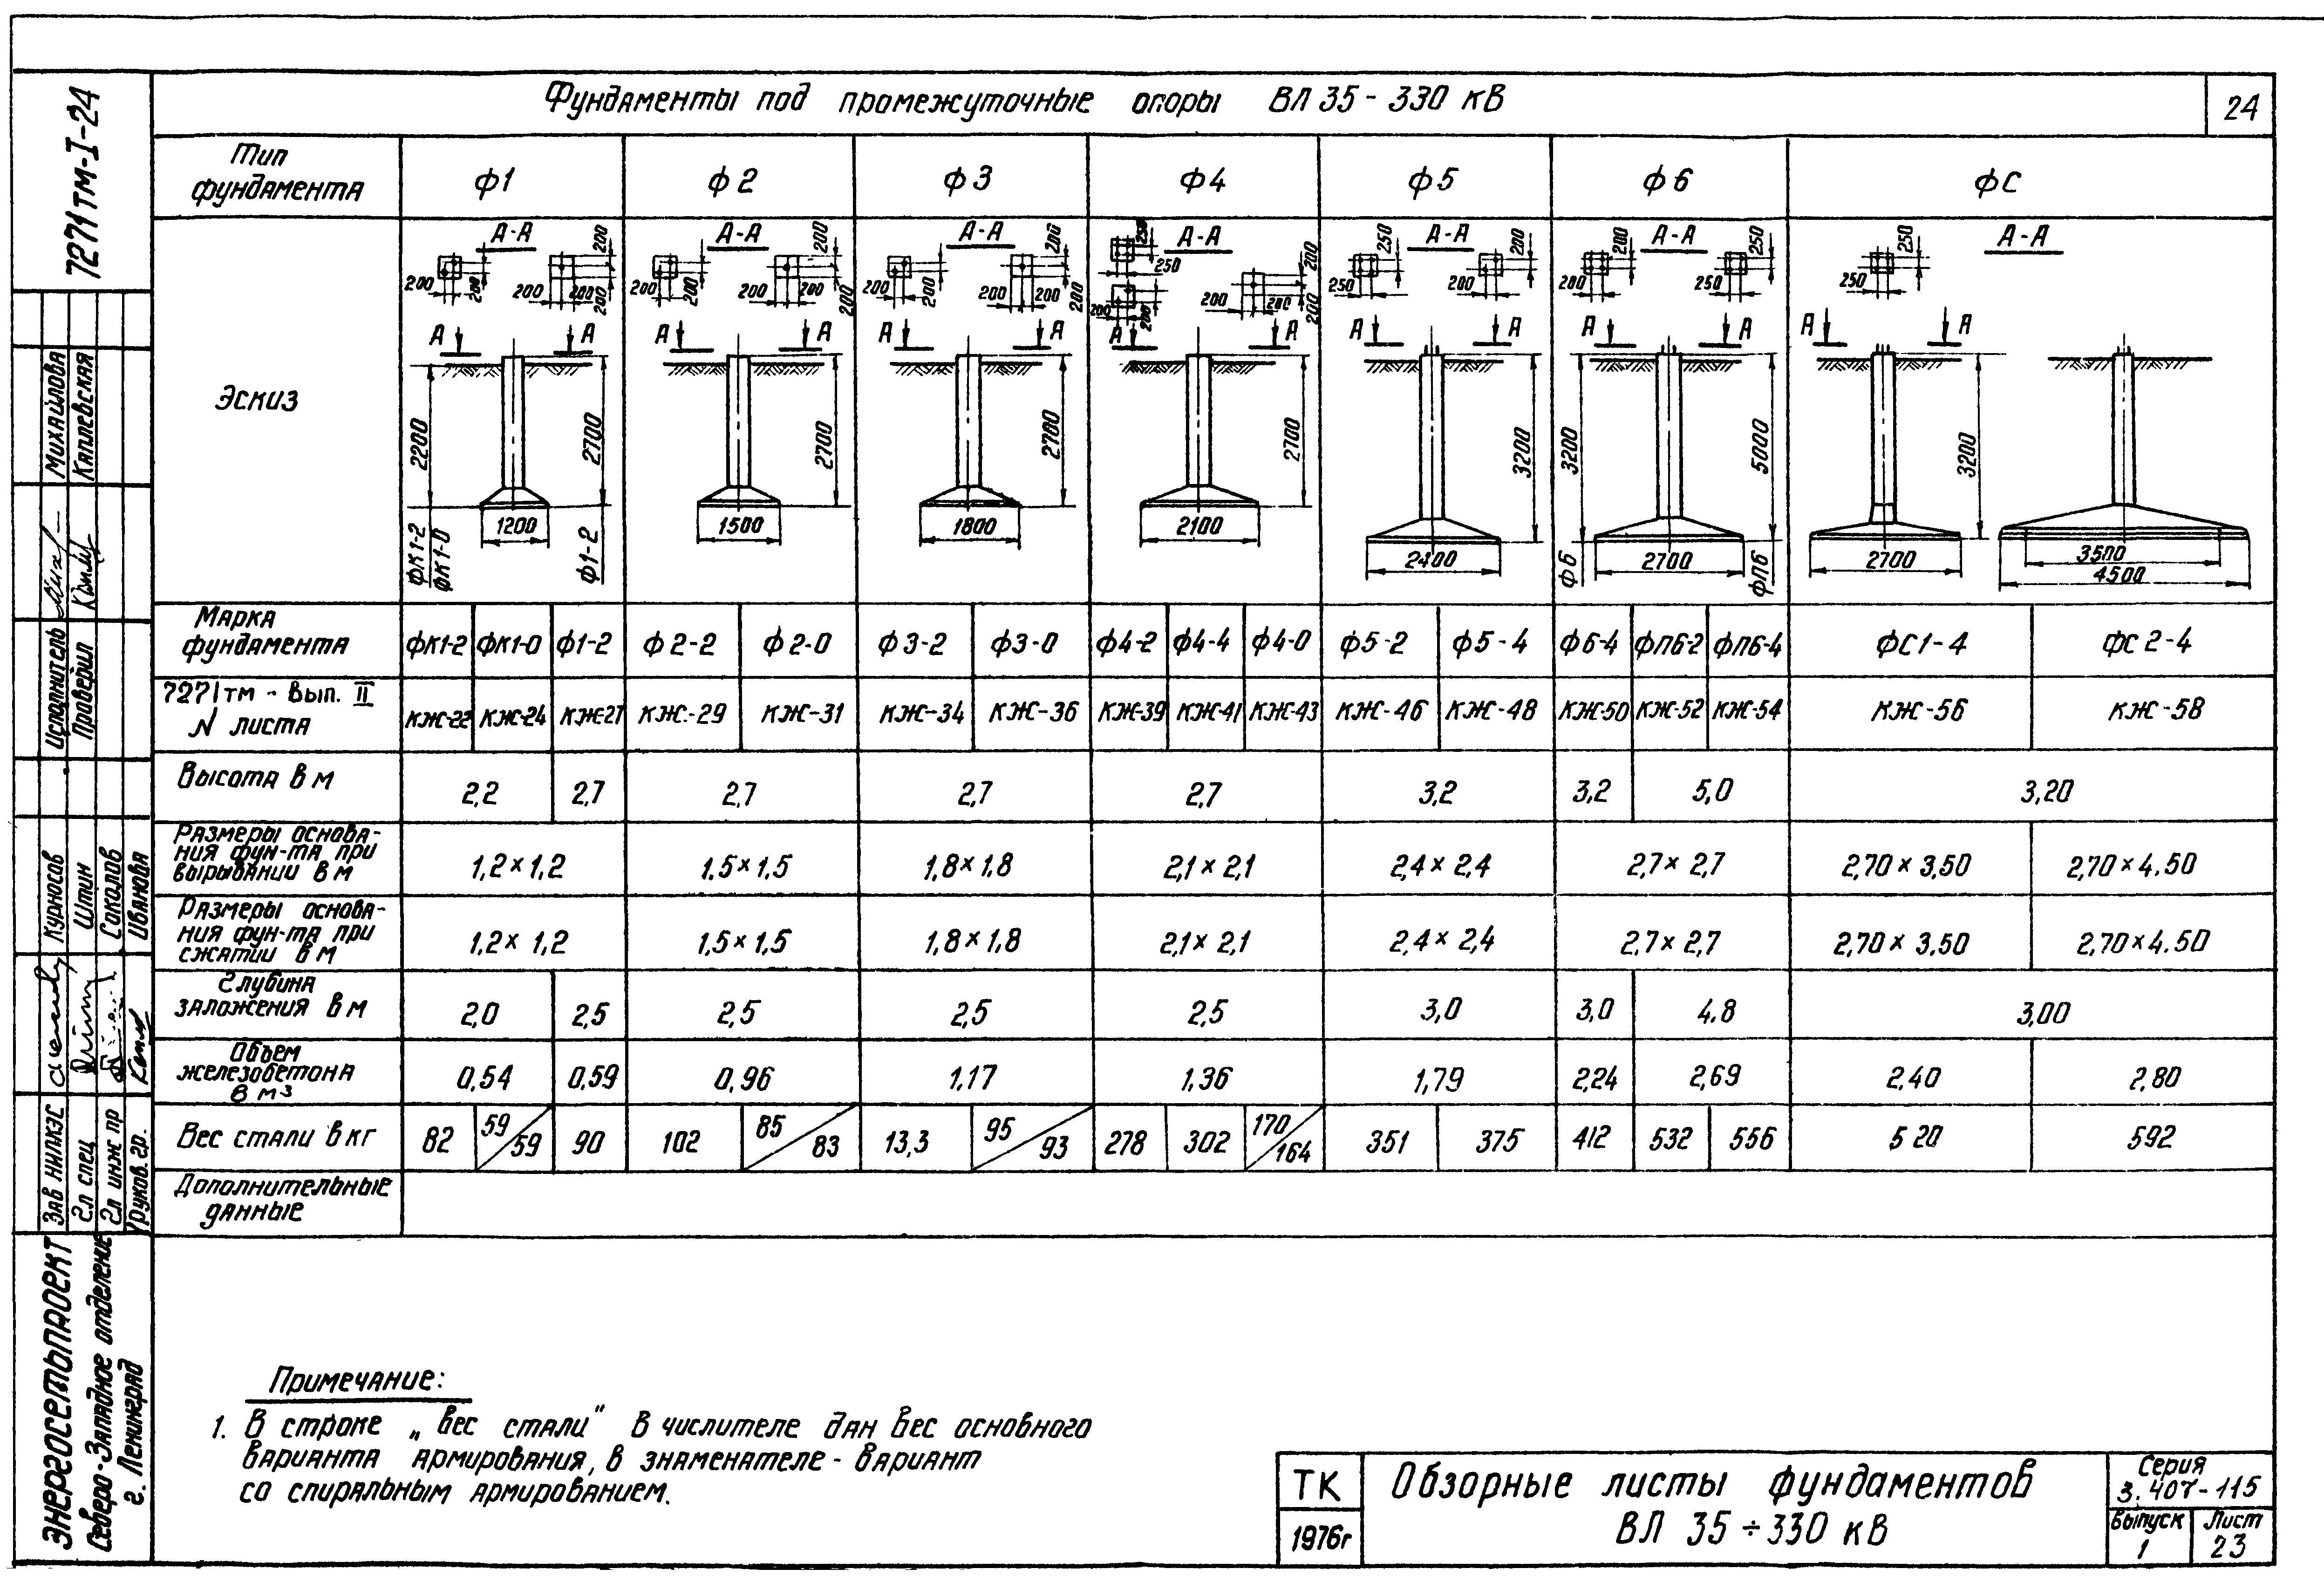 Фундаменты под промежуточные опоры ВЛ 35-330 кВ
24
7271тм-I-24
Тип фундамента
Ф1
Ф2
Ф3
Ф4
Ф5
Ф6
ФС
Эскиз
А-А
200
200
200
200
200
200
А
А
2200
2700
1200
ФК1-2
ФК1-0
Ф1-2
А-А
200
200
200
200
200
200
А
А
2700
1500
А-А
200
200
200
200
200
200
А
А
2700
1800
А-А
250
250
200
200
200
200
200
200
А
А
2700
2100
А-А
250
250
200
200
А
А
3200
2400
А-А
200
200
250
250
А
А
3200
5000
2700
Ф6
ФП6
А-А
250
250
А
А
3200
2700
3500
4500
Марка фундамента
ФК1-2
ФК1-0
Ф1-2
Ф2-2
Ф2-0
Ф3-2
Ф3-0
Ф4-2
Ф4-4
Ф4-0
Ф5-2
Ф5-4
Ф6-4
ФП6-2
ФП6-4
ФС1-4
ФС2-4
7271тм - Вып. II
N листа
КЖ-22
КЖ-24
КЖ-27
КЖ-29
КЖ-31
КЖ-34
КЖ-36
КЖ-39
КЖ-41
КЖ-43
КЖ-46
КЖ-48
КЖ-50
КЖ-52
КЖ-54
КЖ-56
КЖ-58
Высота в м
2,2
2,7
2,7
2,7
2,7
3,2
3,2
5,0
3,20
Размеры основа-
ния фун-та при
вырывании в м
1,2×1,2
1.5×1,5
1,8×1,8
2,1×2,1
2,4×2,4
2,7×2,7
2,70×3,50
2,70×4.50
Размеры основа-
ния фун-та при
сжатии в м
1.2×1,2
1,5×1,5
1,8×1.8
2,1×2,1
2,4×2,4
2,7×2,7
2,70×3,50
2,70×4.50
Глубина
заложения в м
2,0
2,5
2,5
2,5
2,5
3,0
3,0
4,8
3,00
Объем
железобетона
в м³
0,54
0,59
0,96
1,17
1,36
1,79
2,24
2,69
2,40
2,80
Вес стали в кг
82
59/59
90
102
85/83
13,3
95/93
278
302
170/164
351
375
412
532
556
520
592
Дополнительные
данные
Примечание:
1. В строке „Вес стали" в числителе дан вес основного
варианта армирования, в знаменателе - вариант
со спиральным армированием.
Михайлова
Каплевская
Исполнитель
Проверил
Курносов
Штин
Соколов
Иванова
Зав НИЛКЭС
Гл спец
Гл инж пр
Руков. гр.
ЭНЕРГОСЕТЬПРОЕКТ
Северо-Западное отделение
г. Ленинград
ТК
1976г
Обзорные листы фундаментов
ВЛ 35÷330 кВ
Серия
3.407-115
Выпуск
1
Лист
23